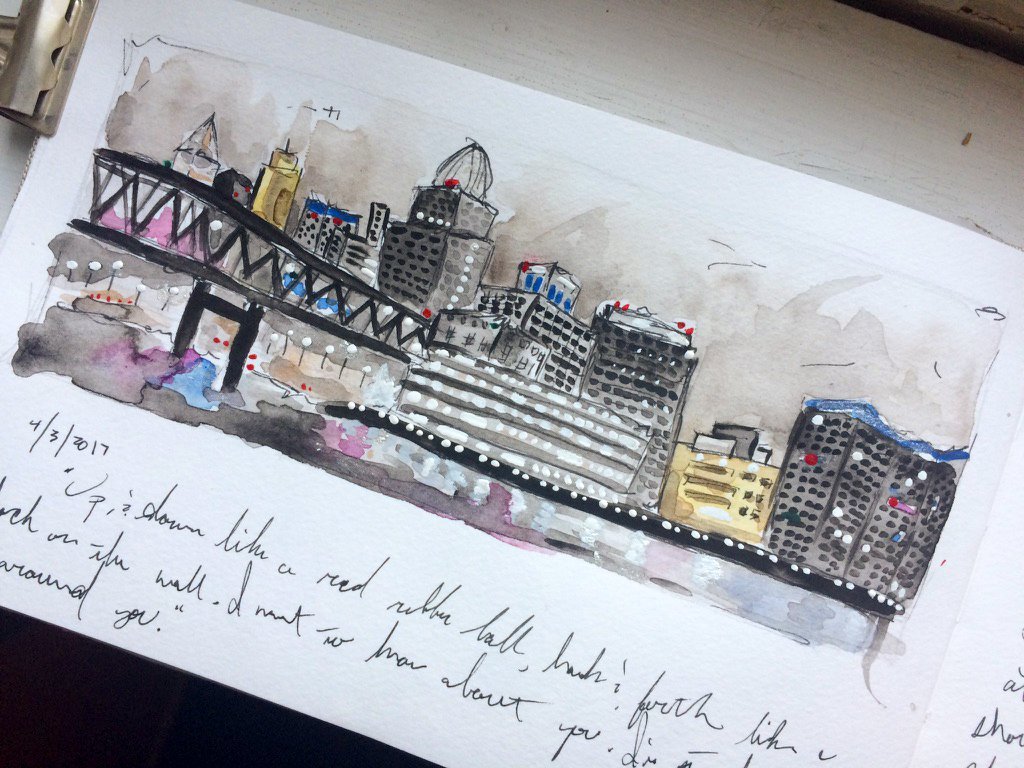 4/3/2017
"Up & down like a red rubber ball, back & forth like a
ock on the wall. I want to know about you. I'm
around you."
shou